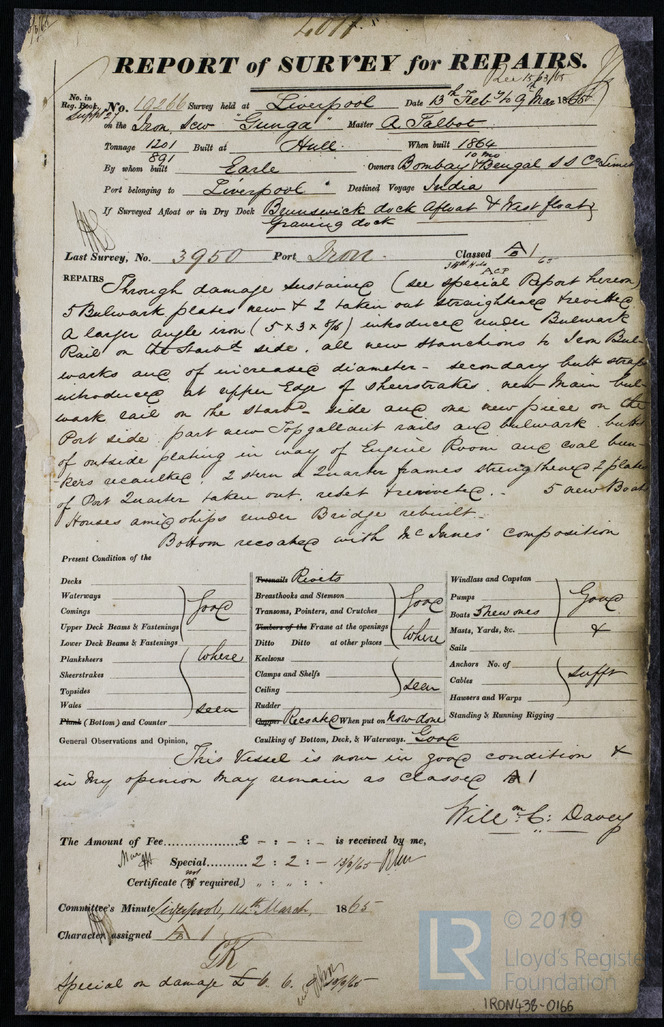 REPORT of SURVEY for REPAIRS.
Rec 15/03/65
No. in Reg. Book Suppt 27 No. 19266 Survey held at Liverpool Date 13th Feb to 9th Mar 1865
on the Iron Scw "Gunga" Master A Talbot
Tonnage 1201 Built at Hull When built 1864
891 10 mo
By whom built Earle Owners Bombay & Bengal S S Co Limd
Port belonging to Liverpool Destined Voyage India
If Surveyed Afloat or in Dry Dock Brunswick dock Afloat & West float
Graving dock
Last Survey, No. 3950 Port Iron Classed A 1
REPAIRS Through damage sustained (see special Report hereon)
5 Bulwark plates new & 2 taken out straightened & rivetted
A larger angle iron (5 x 3 x 6/16) introduced under Bulwark
Rail on the Starbd side, all new Stanchions to Iron Bul-
warks and of increased diameter - secondary butt straps
introduced at upper Edge of sheerstrakes new Main bul-
wark rail on the starbd side and one new piece on the
Port side part new Topgallant rails and bulwark butts
of outside plating in way of Engine Room and coal bun-
kers recaulked 2 stern & Quarter frames strengthened 2 plates
of Port Quarter taken out, reset & rerivetted. - 5 new Boats
Houses amidships under Bridge rebuilt -
Bottom recoated with McInnes' composition
Present Condition of the
Decks
Waterways
Comings
Upper Deck Beams & Fastenings
Good
Lower Deck Beams & Fastenings
Planksheers
Sheerstrakes
Topsides
Wales
where
seen
Plank (Bottom) and Counter
Treenails Rivets
Breasthooks and Stemson
Transoms, Pointers, and Crutches
Timbers of the Frame at the openings
Ditto Ditto at other places
Good
where
Keelsons
Clamps and Shelfs
Ceiling
seen
Rudder
Copper Recoated When put on Now done
Caulking of Bottom, Deck, & Waterways. Good
Windlass and Capstan
Pumps
Boats 5 new ones
Masts, Yards, &c.
Sails
Good
&
Anchors No. of
Cables
Hawsers and Warps
sufft
Standing & Running Rigging
General Observations and Opinion,
This Vessel is now in good condition &
in my opinion may remain as classed A 1
Willm C: Davey
The Amount of Fee £ - : - : - is received by me,
Special 2 : 2 : - 13/3/65
Certificate (if not required) " : " : "
Committee's Minute Liverpool, 14th March, 1865
Character assigned A 1
GK
Special on damage £ 6. 6.
LR © 2019
Lloyd's Register
Foundation
IRON438-0166